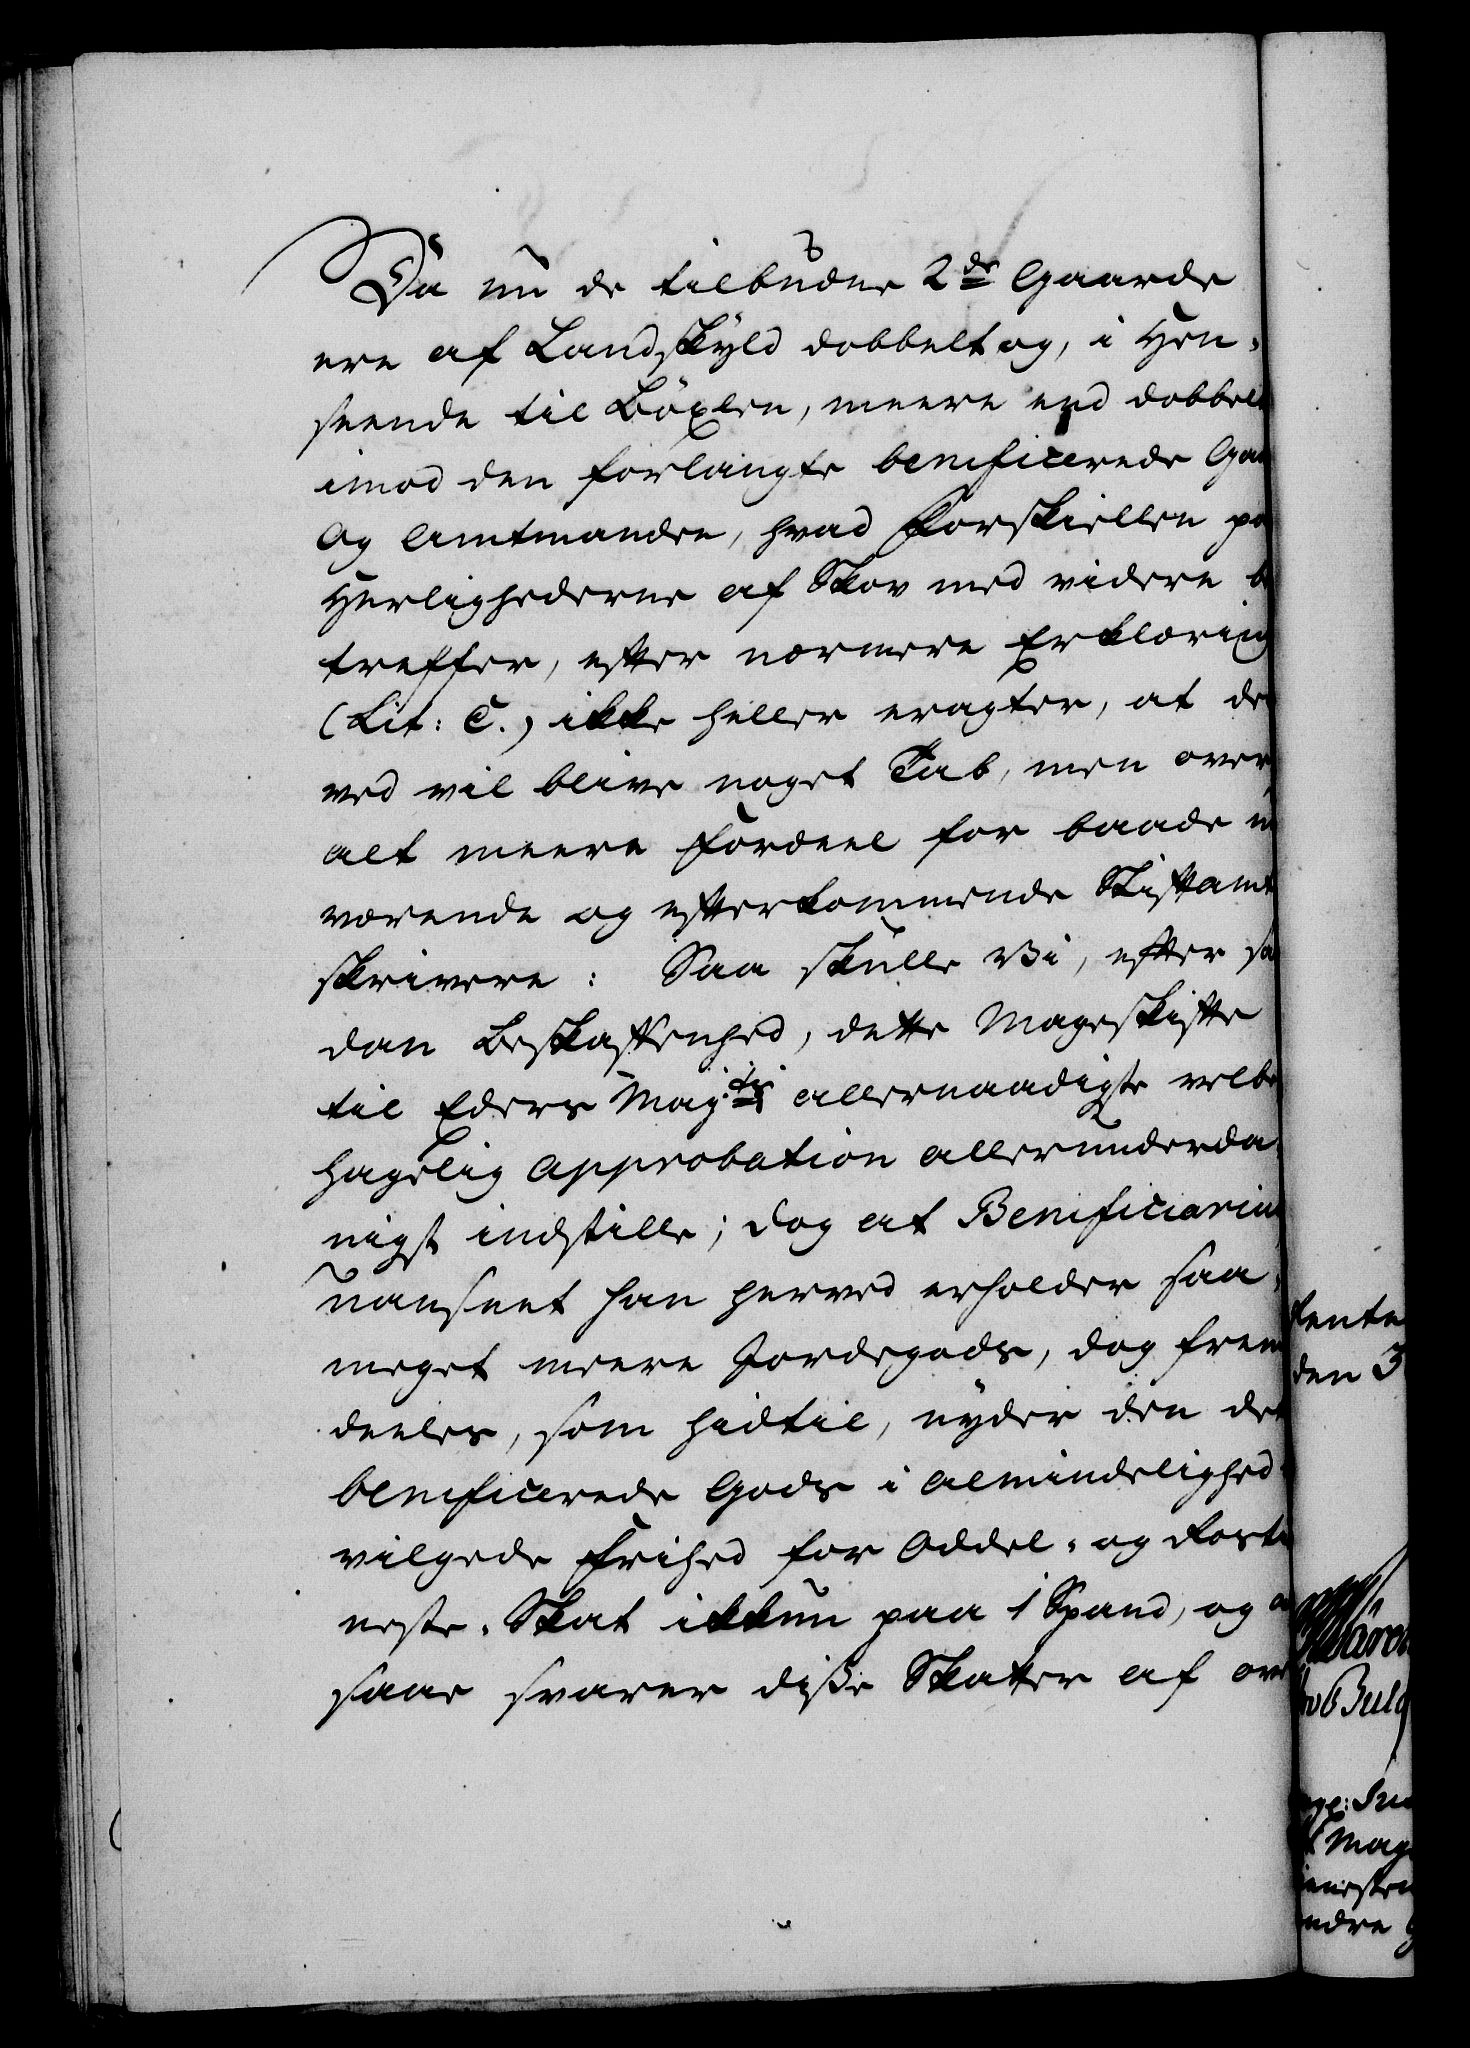 Da nu de tilbudne 2de Gaarde
ere af Landskyld dobbelt og, i Hen-
seende til Böxlen, meere end dobbelt
imod den forlangte benificerede Gaa
Og Amtmanden, hvad Forskiellen paa
Herlighederne af Skov med videre be
treffer, efter nærmere Erklæring
(Lit: C.) ikke heller eragter, at der
ved vil blive noget Tab, men over,
alt meere Fordeel for baade nu
værende og efterkommende Stiftamt
skrivere: Saa skulle Vi, efter saa
dan Beskaffenhed, dette Mageskifte
til Eders Maj:ts allernaadigste velbe
hagelig Approbation allerunderda-
nigst indstille; dog at Benificiarius
uanseet han herved erholder saa-
meget meere Jordegods, dog frem
deeles, som hidtil, nyder den det
benificerede Gods i Almindelighed
vilgede Frihed for Oddel- og Forte
neste-Skat ikkun paa 1 Spand, og a
saar svarer disse Skatter af ove
den 3